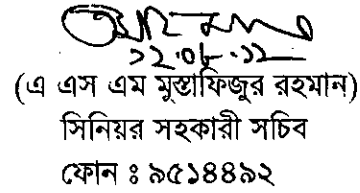 ১২.০৮.১২
(এ এস এম মুস্তাফিজুর রহমান)
সিনিয়র সহকারী সচিব
ফোন ঃ ৯৫১৪৪৯২